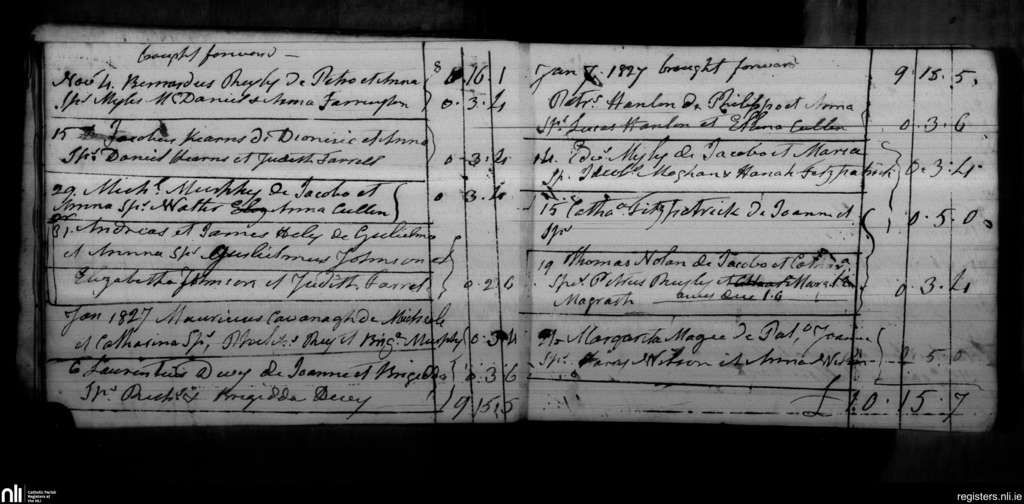 brought forward — 8 16 1
Nov 4. Bernardus Phyly de Petro et Anna
Sps Myles McDaniel & Anna Farrington 0. 3. 4
15 Jacobus Kearns de Dionisio et Anna
Sps Daniel Kearns et Judith Farrell 0-3.4
29. Michl. Murphy de Jacobo et
Anna Sps Walter Anna Cullen 0 3.4
31. Andreas et James Hely de Gulielmo
et Annna Sps Gulielmus Johnson et
Elizabetha Johnson et Judith Farrel 0.2 6
Jan 1827 Mauricius Cavanagh de Michaele
et Catharina Sps, et Brigd. Murphy 0.3 4
6 Laurentius de Joanne et Brigidda 0.3 6
Sps Brigidda 9 15.5
Jan 7. 1827 brought forward 9.15.5.
Petrs. Hanlon de Philippo et Anna
Sps. Lucas Hanlon et Ellena Cullen 0.3.6
14. Edvs. Myly de Jacobo et Maria
Sps. Jacobs. Moghan & Hanah Fitzpatrick 0.3.4.
15 Catha Fitzpatrick de Joanne et
Sps 0.5.0
19 Thomas Nolan de Jacobo et
Sps. Petrus Phyly et Margt
Magrath owes due 1.6 0.3.4
Margarita Magee de Pat, or Joanne
Sps. Wilson et Anna Wilson 0.5.0
£ 10.15.7
nli
Catholic Parish
Registers at
the NLI
registers.nli.ie